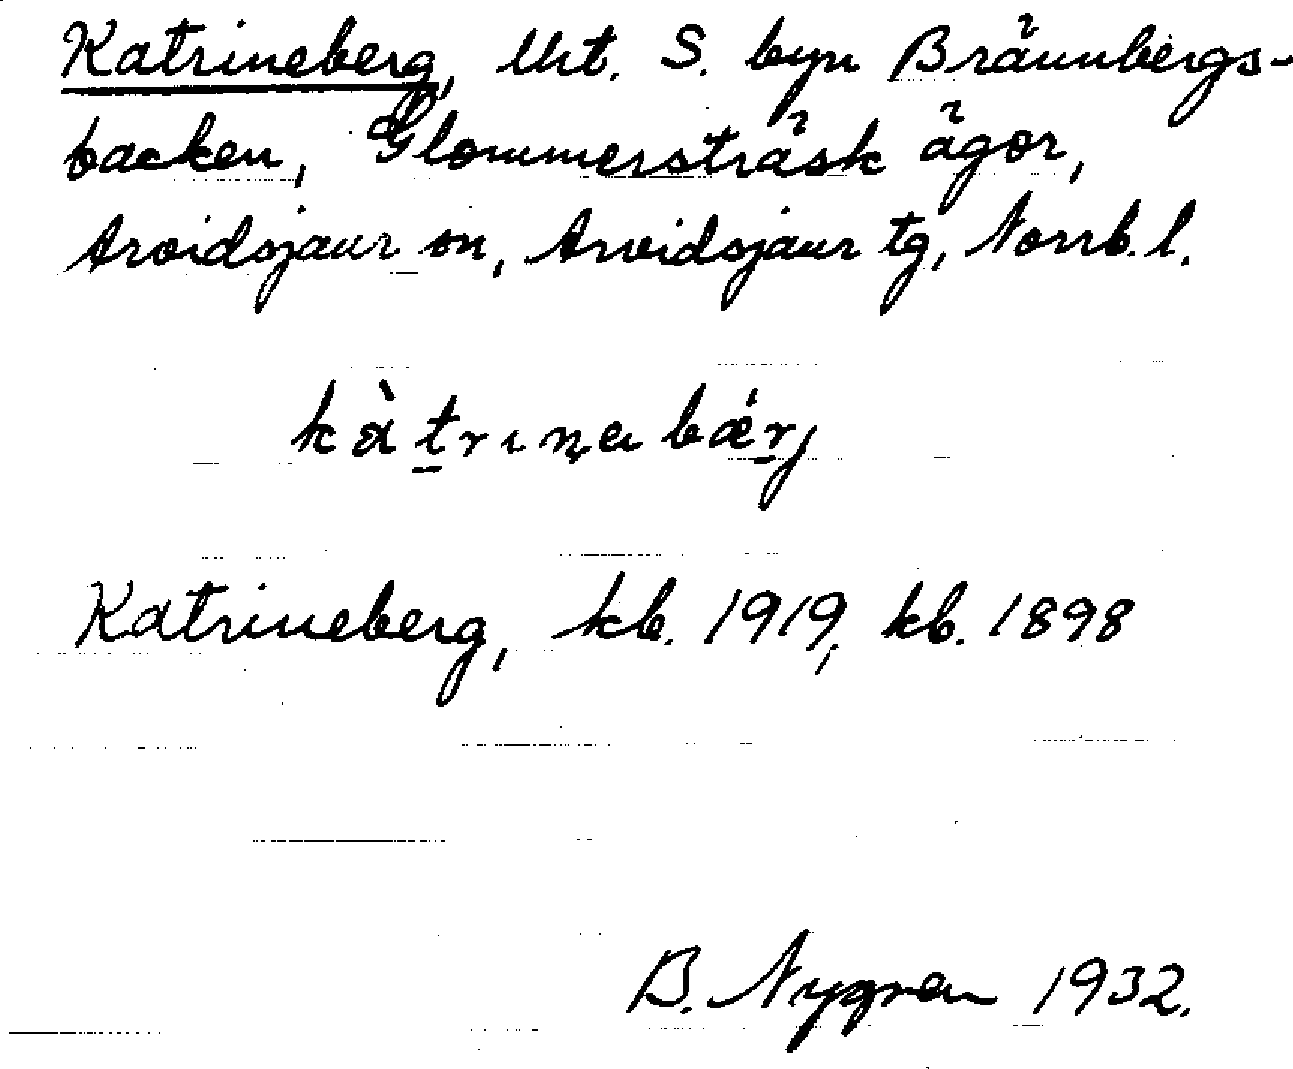 Katrineberg, lht. S. byn Brännbergs-
backen, Glommersträsk ägor,
Arvidsjaur sn, Arvidsjaur tg, Norrb. l.
kàtrinabǽrj
Katrineberg, kb. 1919, kb. 1898
B. Nygren 1932.